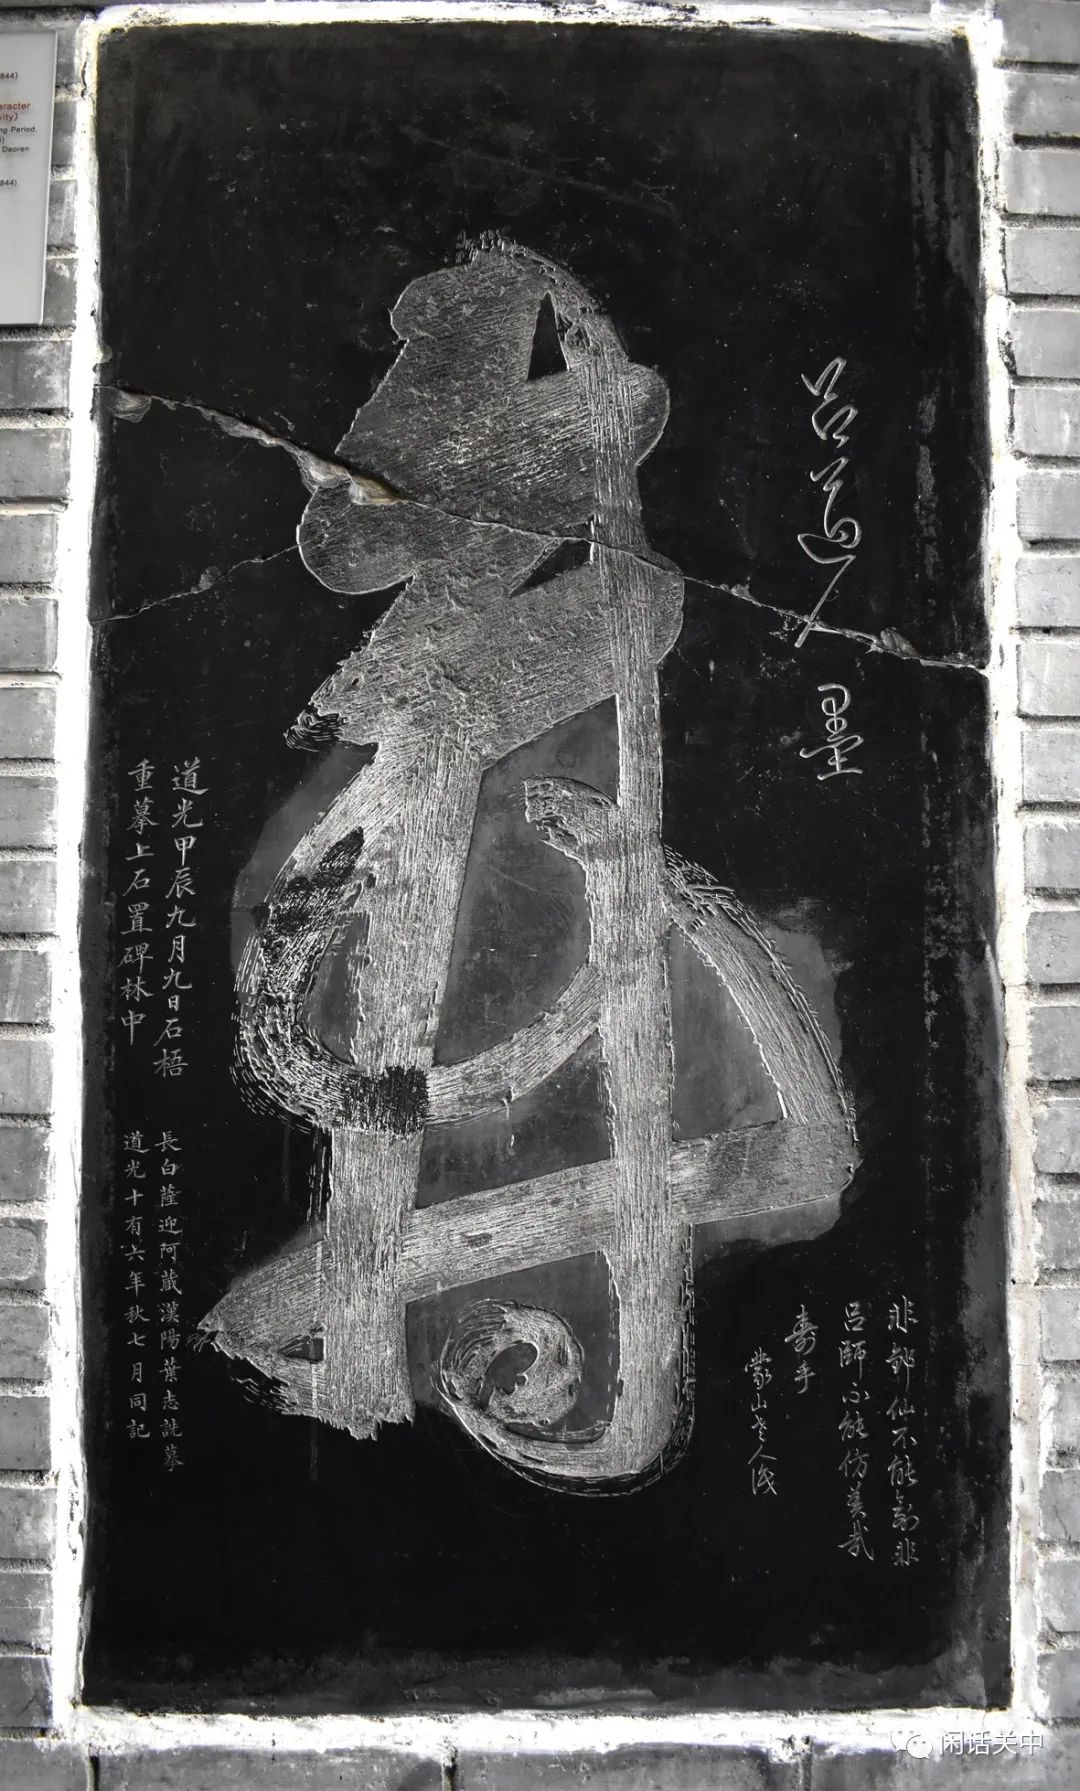 844)
aracter
vity)
ng Period,
Daoren
844)
壽
吕道人墨
非郤仙不能
吕師不能仿
壽手
蒙山
道光甲辰九月九日石梧
重摹上石置碑林中
長白薩迎阿蔵漢陽葉志詵摹
道光十有六年秋七月同記
闲话关中